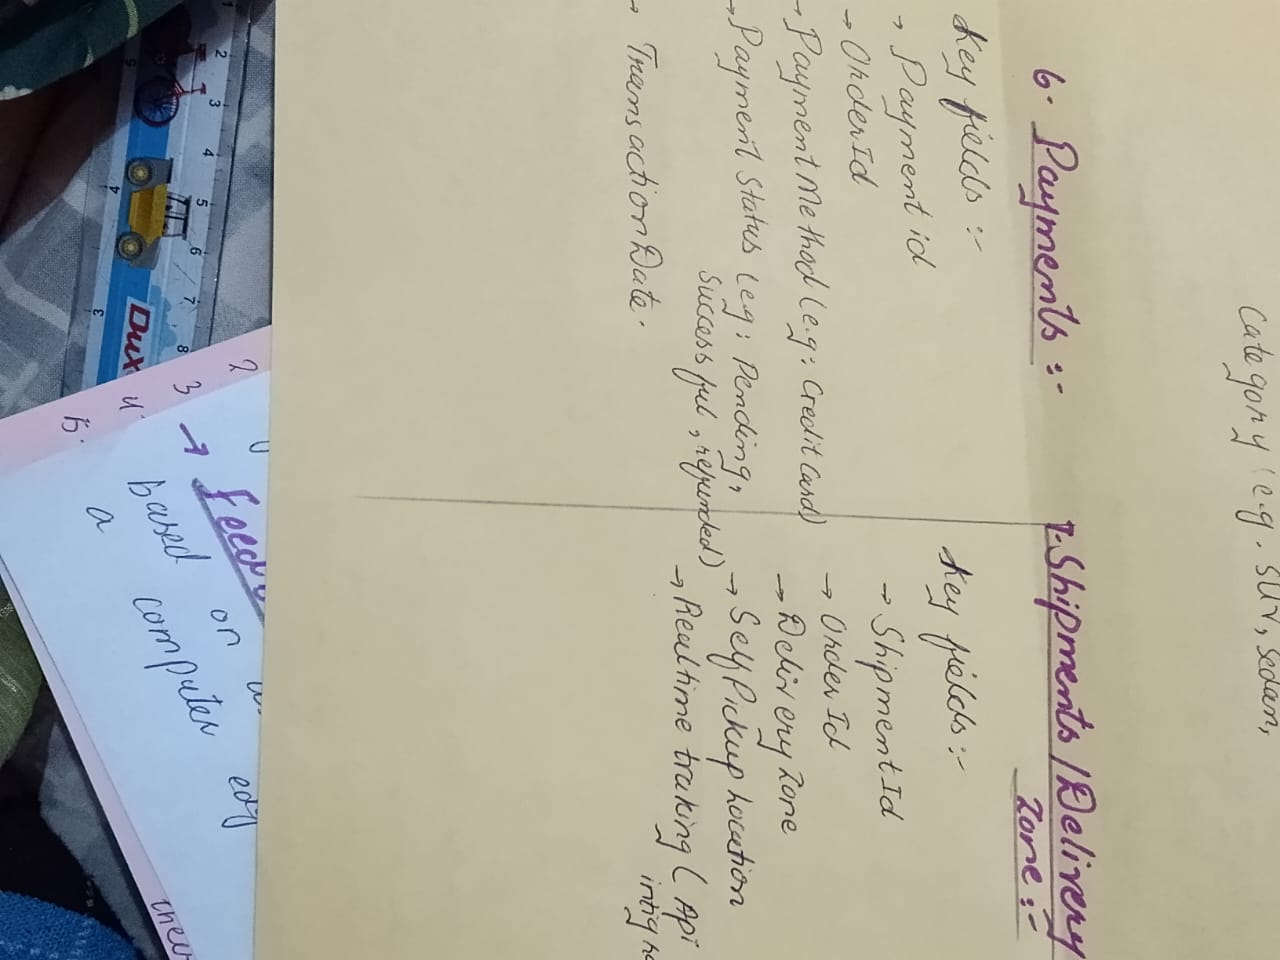 Category (e.g. SUV, Sedan,
6. Payments :-
Key fields :-
→ Payment id
→ OrderId
→ PaymentMethod (e.g: Credit Card)
→ Payment Status (eg: Pending,
Successful, refunded)
→ TransactionDate.
7. Shipments / Delivery
Zone :-
Key fields :-
→ Shipment Id
→ Order Id
→ Delivery Zone
→ Self Pickup Location
→ Realtime traking ( Api
2
3
4
5
6
7
8
5
4
3
Dux
2
3
4
5.
→
based on
a computer
edg